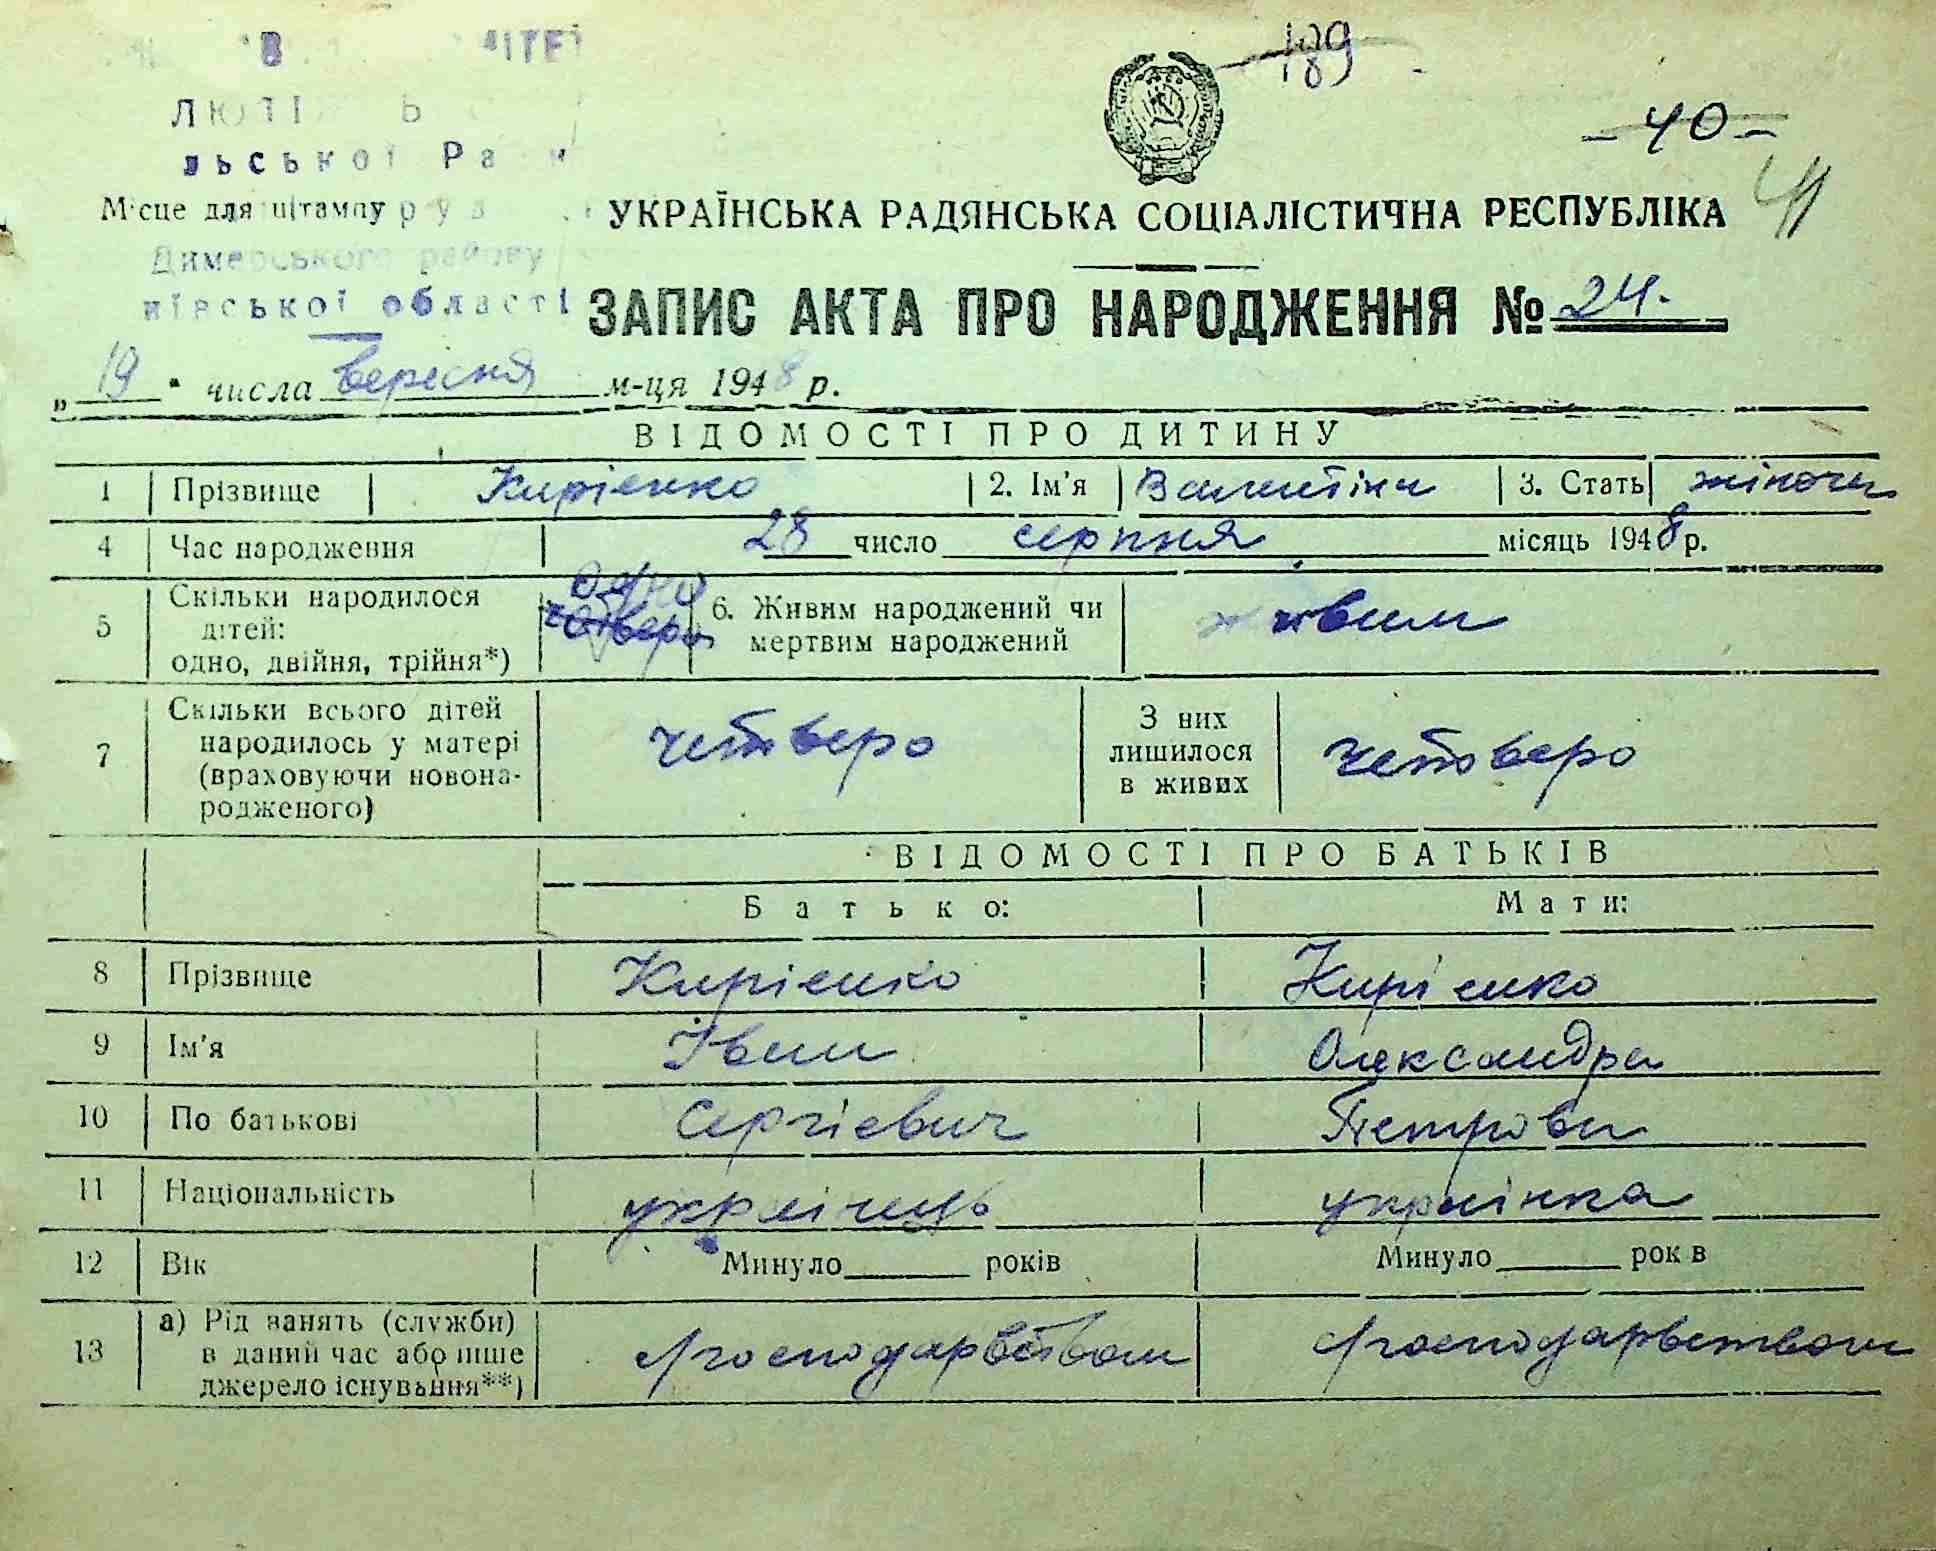 189
- 40 -
41
ЛЮТІ Ь
льської Ра
Місце для штампу
УКРАЇНСЬКА РАДЯНСЬКА СОЦІАЛІСТИЧНА РЕСПУБЛІКА
Димерського району
київської області
ЗАПИС АКТА ПРО НАРОДЖЕННЯ № 24.
„ 19 " числа вересня м-ця 1948 р.
ВІДОМОСТІ ПРО ДИТИНУ
1 Прізвище Кирієнко 2. Ім'я Валентіна 3. Стать жіноча
4 Час народження 28 число серпня місяць 1948 р.
5 Скільки народилося дітей: одно, двійня, трійня*) одно четверо 6. Живим народжений чи мертвим народжений живим
7 Скільки всього дітей народилось у матері (враховуючи новонародженого) четверо З них лишилося в живих четверо
ВІДОМОСТІ ПРО БАТЬКІВ
Батько: Мати:
8 Прізвище Кирієнко Кирієнко
9 Ім'я Іван Олександра
10 По батькові Сергієвич Петровн
11 Національність українець українка
12 Вік Минуло ____ років Минуло ____ рок в
13 а) Рід занять (служби) в даний час або інше джерело існування**) господарвством господарвством